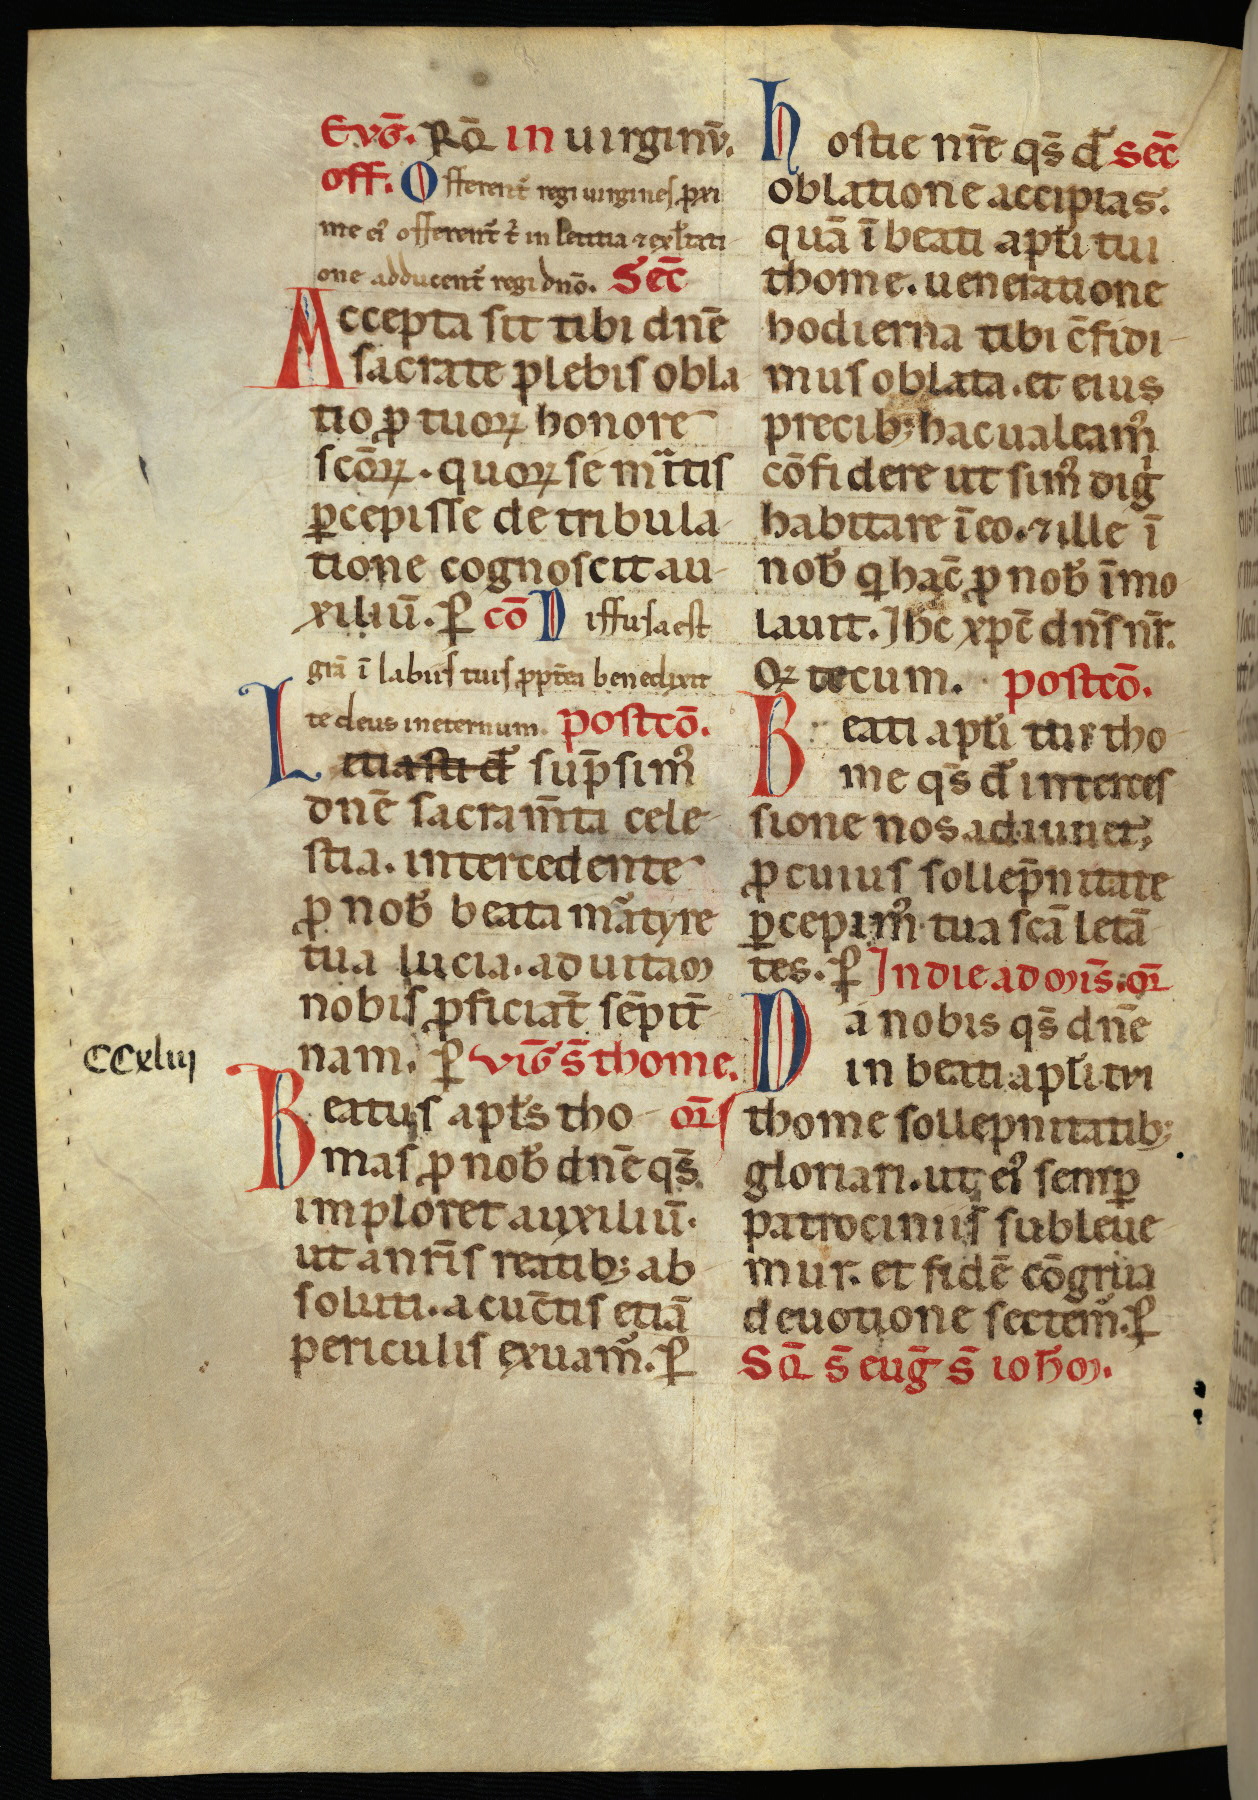 Evḡ. Rq̄ in uirginū.
off. Offerent̄ regi uirgines ꝓxi
me ei᷒ offerent̄ t͛ in letitia ⁊ exl̄tati
one adducent̄ regi dn̄o. Sec̄
Accepta sit tibi dn̄e
sacrate plebis obla
tio ꝓ tuoꝝ honore
sc̄oꝝ. quoꝝ se m̄itis
ꝑcepisse de tribula
tione cognoscit au
xiliū. ꝑ cō Diffusa est
grā ī labiis tuis ꝓpt̄ea benedixit
te deus in eternum. postcō.
Letiasti d̄s sup̄sim᷒
dn̄e sacram̄ta cele
stia. intercedente
ꝓ nob̄ beata mr̄atyre
tua lucia. ad uitam
nobis ꝓficiat̄ sēpit̄
nam. ꝑ viḡ s̄ thome.
CCxliij
Beatus apl̄s tho or̄s
mas ꝓ nob̄ dn̄e qs̄
imploret auxiliū.
ut a nr̄is reatibꝫ ab
soluti. a cūctis etiā
periculis exuam᷒. ꝑ
hostie nr̄e qs̄ d̄s sec̄
oblatione accipias.
quā ī beati apl̄i tui
thome. ueneratione
hodierna tibi c̄fidi
mus oblata. et eius
precibꝫ hac ualeam᷒
cōfidere ut sim᷒ digī
habitare ī eo. ⁊ ille ī
nob̄ q̄ hāc ꝓ nob̄ īmo
lauit. Ihc xp̄c dn̄s nr̄.
Qꝫ tecum. postcō.
Beati apl̄i tui tho
me qs̄ d̄s interces
sione nos adiuuet,
ꝓ cuius sollep̄nitate
ꝑcepim᷒ tua sc̄a letā
tes. ꝑ In die ad mis̄. or̄
Da nobis qs̄ dn̄e
in beati apl̄i tui
thome sollepnitatibꝫ
gloriari. ut ei᷒ semꝑ
patrociniis subleue
mur. et fidē cōgrua
deuotione sectem᷒. ꝑ
Sq̄ s̄ euḡ s̄ ioh̄m.